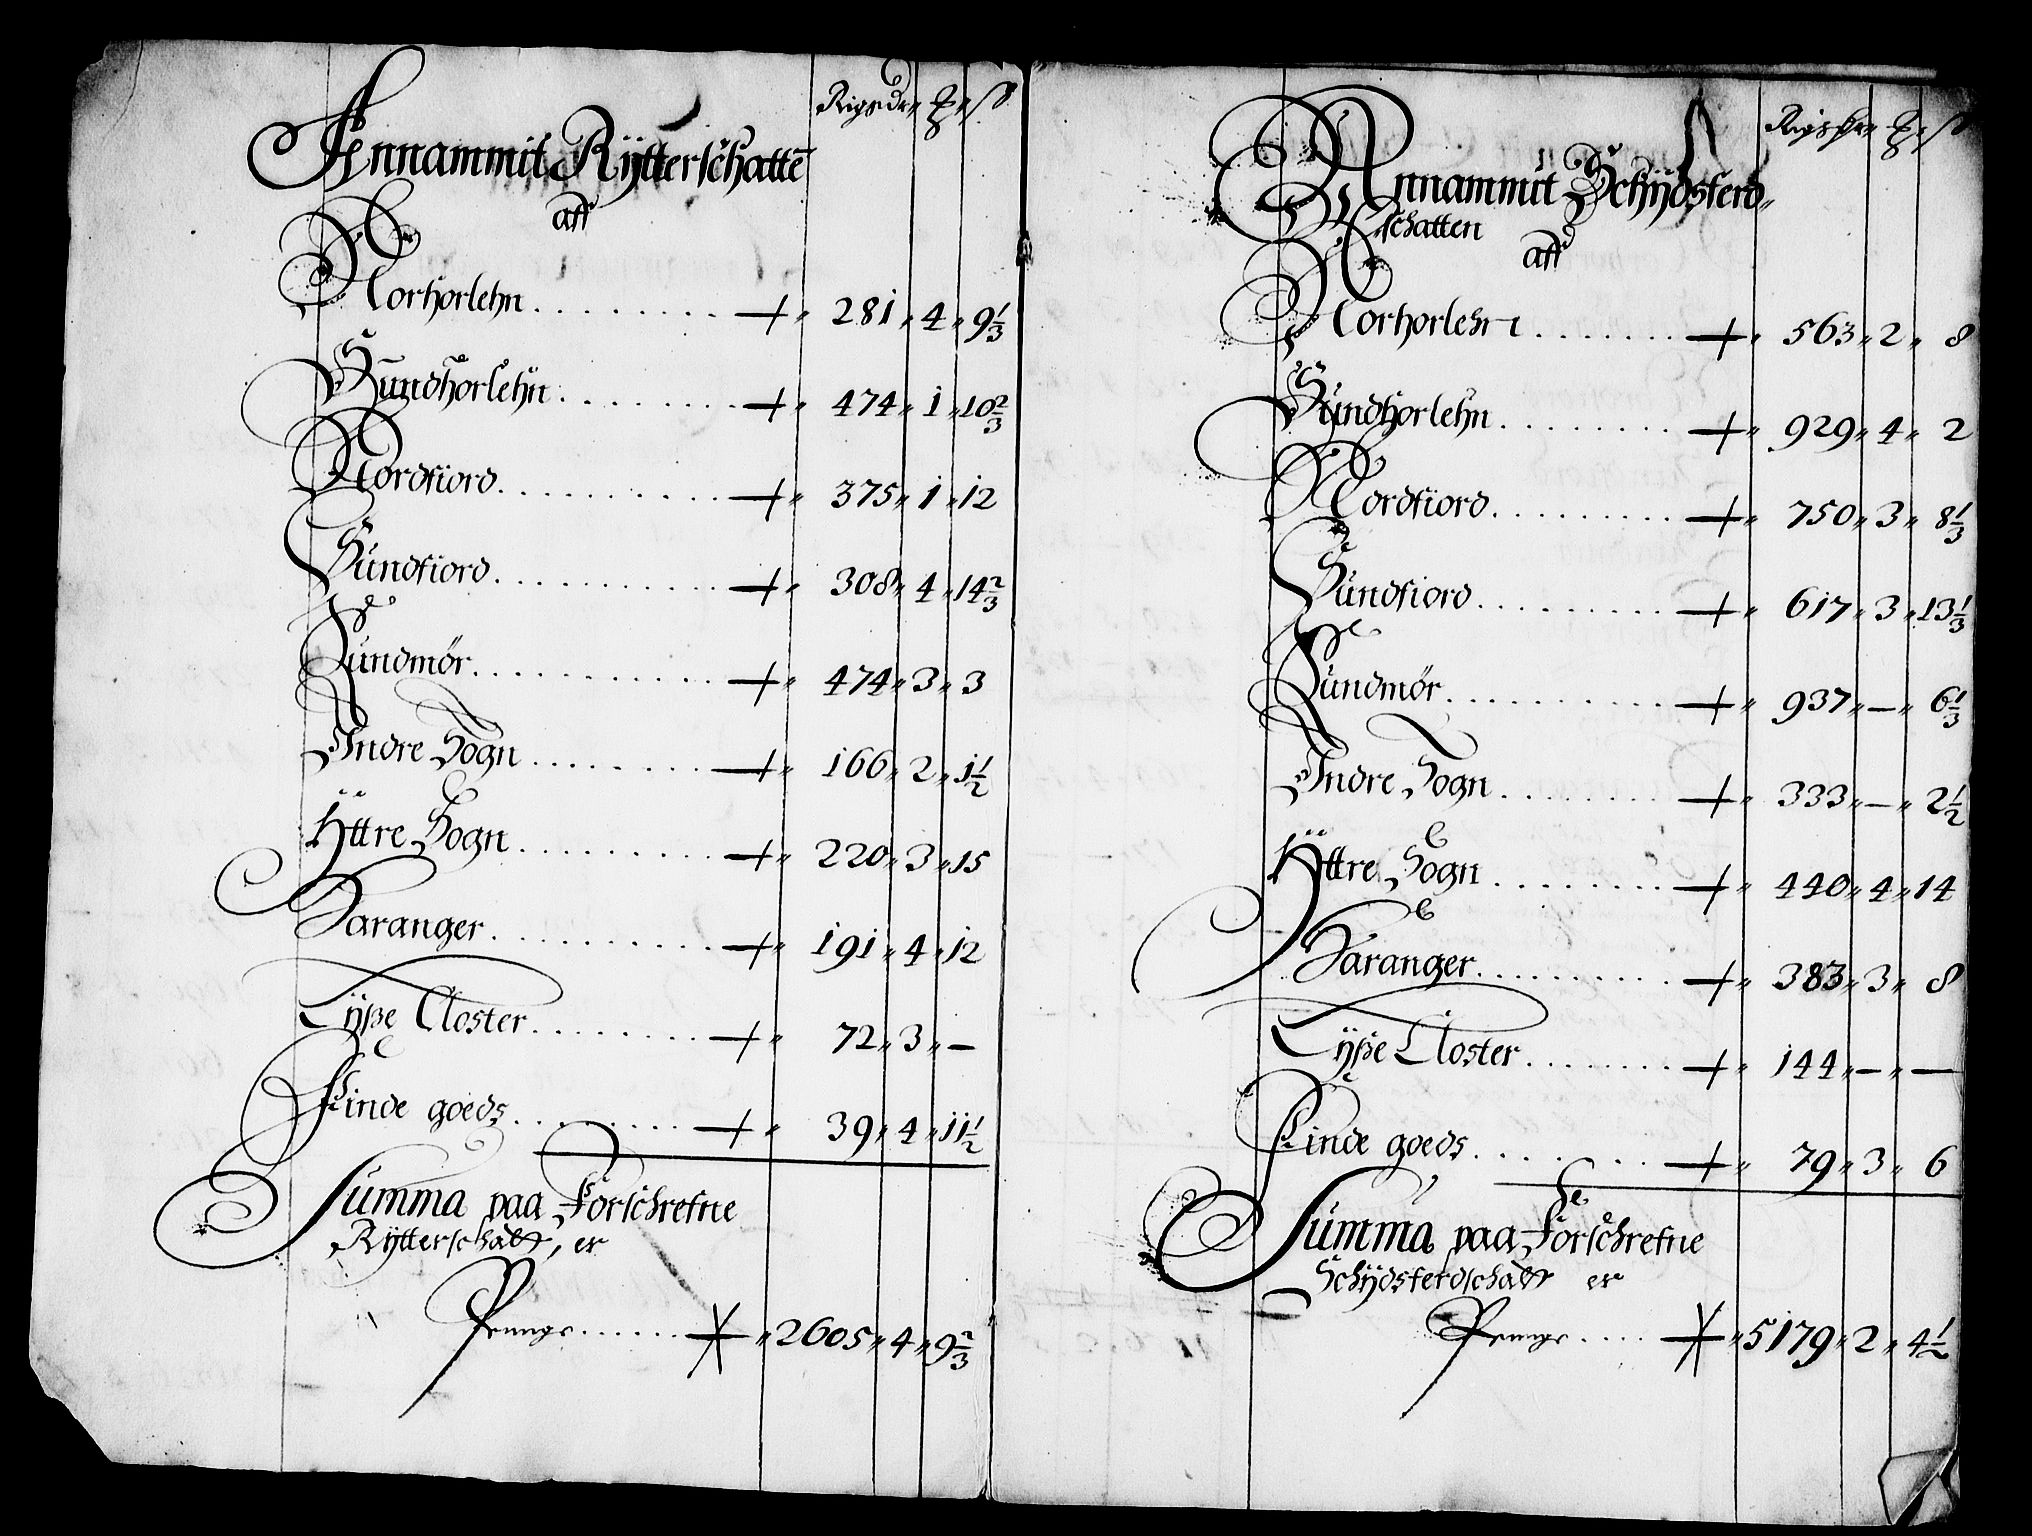 Rigsdr ₰ ß
Annammit Rÿtterschatte
aff
Norhorlehn . . . . . . . . . 281 „ 4 „ 9 1/3
Sundhorlehn . . . . . . . . 474 „ 1 „ 10 2/3
Nordfiord . . . . . . . . . . 375 „ 1 „ 12
Sundfiord . . . . . . . . . . 308 „ 4 „ 14 2/3
Sundmör . . . . . . . . . . 474 „ 3 „ 3
Indre Sogn . . . . . . . . 166 „ 2 „ 1 1/2
Ÿttre Sogn . . . . . . . . 220 „ 3 „ 15
Saranger . . . . . . . . . . 191 „ 4 „ 12
Lÿße Closter . . . . . . . . 72 „ 3 „ —
Finde goeds . . . . . . . . 39 „ 4 „ 11 1/2
Summa paa Forschrefne
Rÿtterschatt, er
Peninge . . . . . . 2605 „ 4 „ 9 2/3
Rigsdr ₰ ß
Annammit Schÿdsferd„
schatten
aff
Norhorlehn . . . . . . . . 563 „ 2 „ 8
Sundhorlehn . . . . . . . . 929 „ 4 „ 2
Nordfiord . . . . . . . . . . 750 „ 3 „ 8 1/3
Sundfiord . . . . . . . . . . 617 „ 3 „ 13 1/3
Sundmör . . . . . . . . . . 937 „ — „ 6 1/3
Indre Sogn . . . . . . . . 333 „ — „ 2 1/2
Ÿttre Sogn . . . . . . . . 440 „ 4 „ 14
Saranger . . . . . . . . . . 383 „ 3 „ 8
Lÿße Closter . . . . . . . . 144 „ — „ —
Finde goeds . . . . . . . . 79 „ 3 „ 6
Summa paa Forschrefne
Schÿdsferdschatt er
Penge . . . . 5179 „ 2 „ 4 1/2